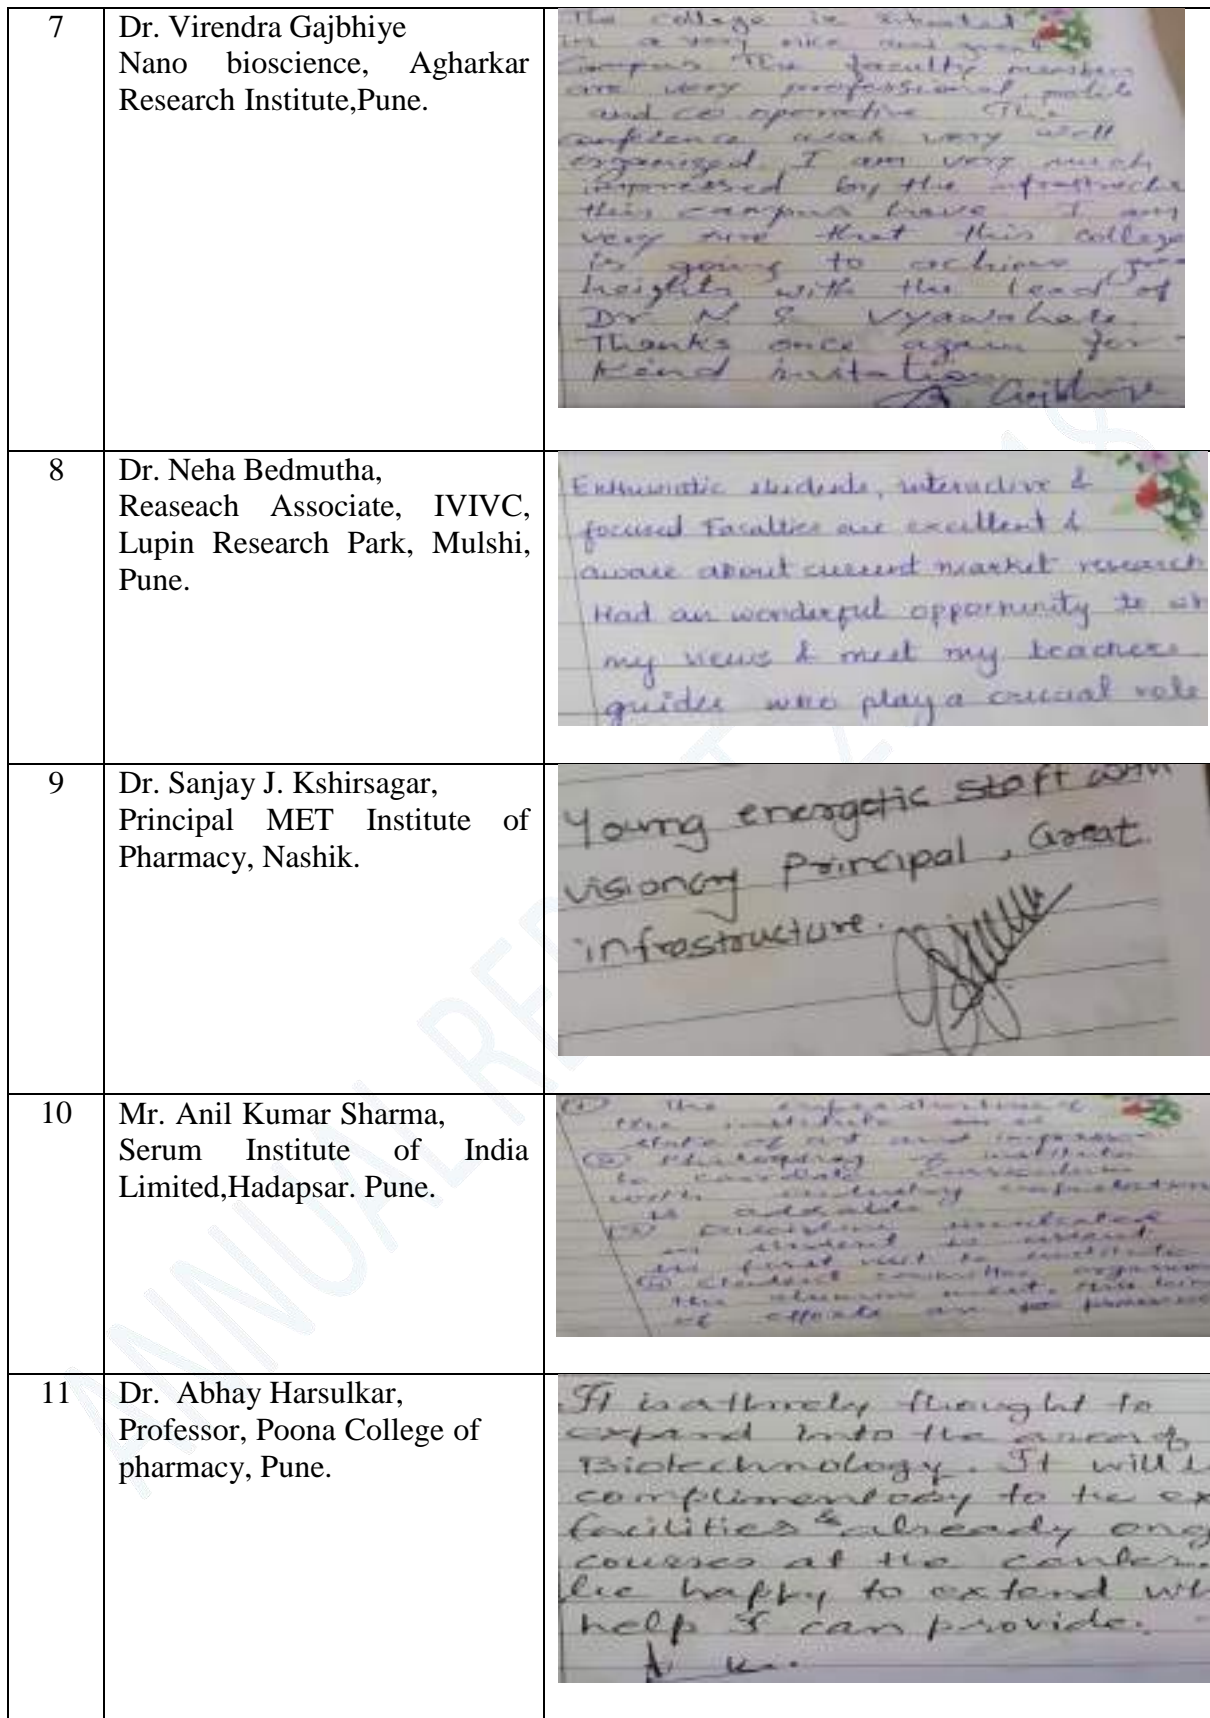 7
Dr. Virendra Gajbhiye
Nano bioscience, Agharkar
Research Institute,Pune.
The college is situated
in a very nice and green
Campus The faculty members
are very professional, polite
and co operative The
conference was very well
organized. I am very much
impressed by the infrastructu
this campus have I am
very sure that this college
is going to achieve
heights with the lead of
Dr N. S. Vyawahare.
Thanks once again for
Kind invitation
Gajbhiye
8
Dr. Neha Bedmutha,
Reaseach Associate, IVIVC,
Lupin Research Park, Mulshi,
Pune.
Enthusiatic students, interactive &
focused Faculties are excellent &
aware about current market research
Had an wonderful opportunity to sh
my views & meet my teachers
guides who play a crucial role
9
Dr. Sanjay J. Kshirsagar,
Principal MET Institute of
Pharmacy, Nashik.
Young energetic staff with
visionary Principal, Great
infrastructure.
10
Mr. Anil Kumar Sharma,
Serum Institute of India
Limited,Hadapsar. Pune.
① The
the institute
state of art and
② Philosophy of institute
to curriculum
with industry
is
③ Discipline
on student is
in first visit to institute
④ Student committee
the alumni meet. this
of efforts
11
Dr. Abhay Harsulkar,
Professor, Poona College of
pharmacy, Pune.
It is a timely thought to
expand into the area of
Biotechnology. It will b
complimentory to the ex
facilities & already ong
courses at the center.
be happy to extend wh
help I can provide.
ANNUAL REPORT